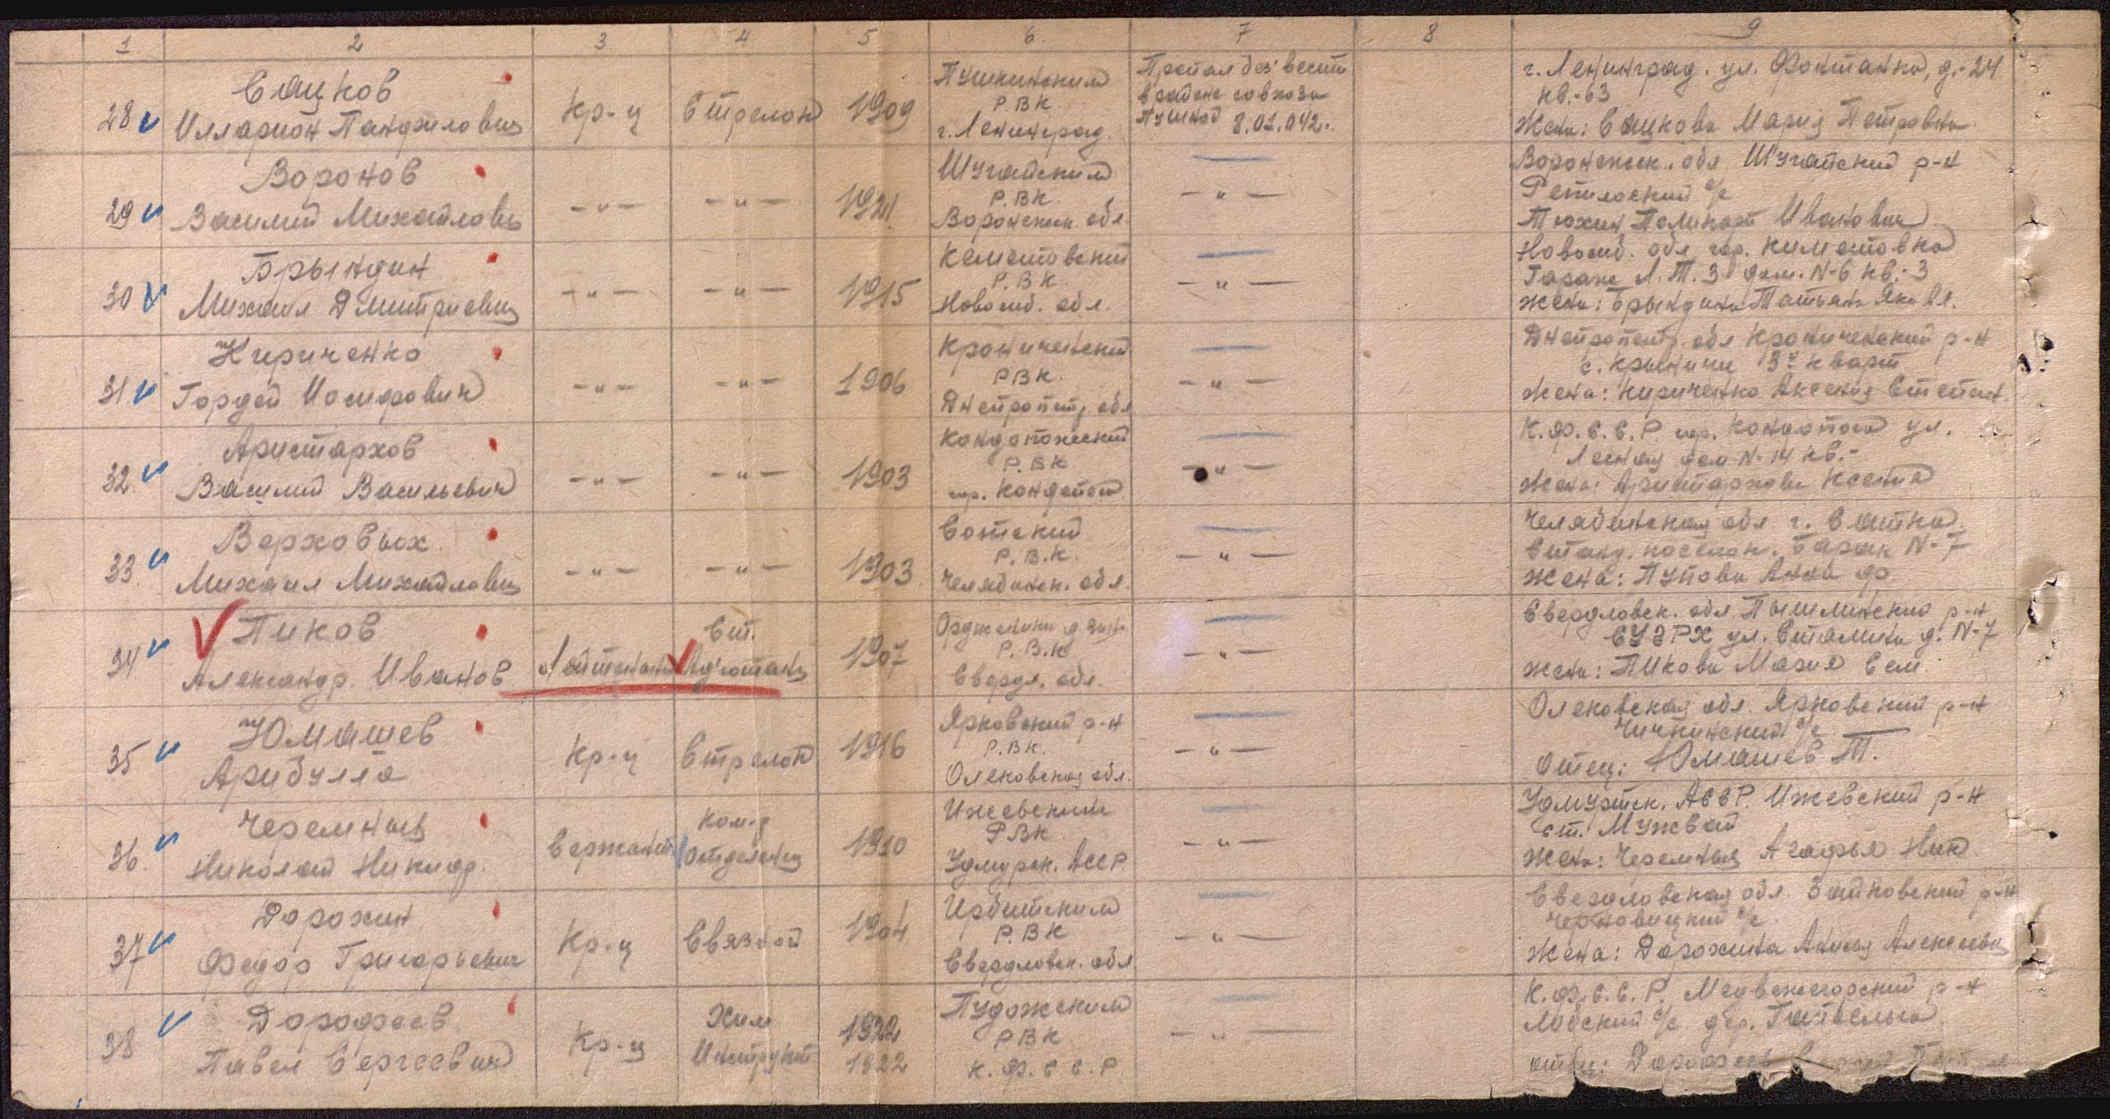 1 2 3 4 5 6 7 8 9
28 Сацков Илларион Панфилович Кр-ц Стрелок 1909
Пушкинским
Р.В.К.
г. Ленинград.
Пропал без вести
в районе совхоза
Пушной 8.01.042.
г. Ленинград. ул. Фонтанка, д.-24
кв.-63
Жена: Сацкова Мария Петровна
29 Воронов Василий Михайлович -"- -"- 1921
Р.В.К.
Воронежск. обл.
-"-
Воронежск. обл р-н
с/с
Иванович
30 Брындин Михаил Дмитриевич -"- -"- 1915
Кемеровский
Р.В.К.
Новосиб. обл.
-"-
Новосиб. обл гор. Кемерово
дом. N-6 кв.-3
Жена: Брындина Татьяна Яковл.
31 Кириченко Гордей Иосифович -"- -"- 1906
Криничанский
РВК.
Днепропетр обл
-"-
Днепропетр. обл Криничанский р-н
с. Криничи 3й кварт
Жена: Кириченко Аксения Степан.
32 Аристархов Василий Васильевич -"- -"- 1903
Кондопожский
Р.ВК
гор. Кондопога
-"-
К.Ф.С.С.Р гор. Кондопога ул.
Лесная дом N-14 кв.-
Жена: Аристархова Ксения
33 Верховых Михаил Михайлович -"- -"- 1903
Р.В.К.
Челябинск. обл.
-"-
Челябинская обл г.
Барак N-7
Жена: Анна Ф
34 Пиков Александр. Иванов Лейтенант Ст. Адъютант 1907
Р.В.К
Свердл. обл.
-"-
Свердловск. обл Пышминский р-н
ул. Сталина д. N-7
Жена: Пикова Мария Сем.
35 Юмашев Арибулла Кр-ц Стрелок 1916
Ярковский р-н
Р.ВК.
Омская обл.
-"-
обл. Ярковский р-н
с/с
Отец: Юмашев Т.
36. Черемных Николай Никифор. Сержант ком-р отделения 1910
Ижевским
РВК
Удмурск. АССР
-"-
Удмуртск. АССР. Ижевский р-н
ст.
Жена: Черемных Агафья Ник
37 Дорохин Федор Григорьевич Кр-ц Связной 1904
Ирбитским
Р.ВК
Свердловск. обл
-"-
Свердловская обл. Зайковский р-н
с/с
Жена: Дорохина Алексеевна
38 Дорофеев Павел Сергеевич Кр-ц Хим Инструкт 1922 1922
Пудожским
РВК
К.Ф.С.С.Р.
-"-
К.Ф.С.С.Р. Медвежегорский р-н
с/с дер.
отец: Дорофеев